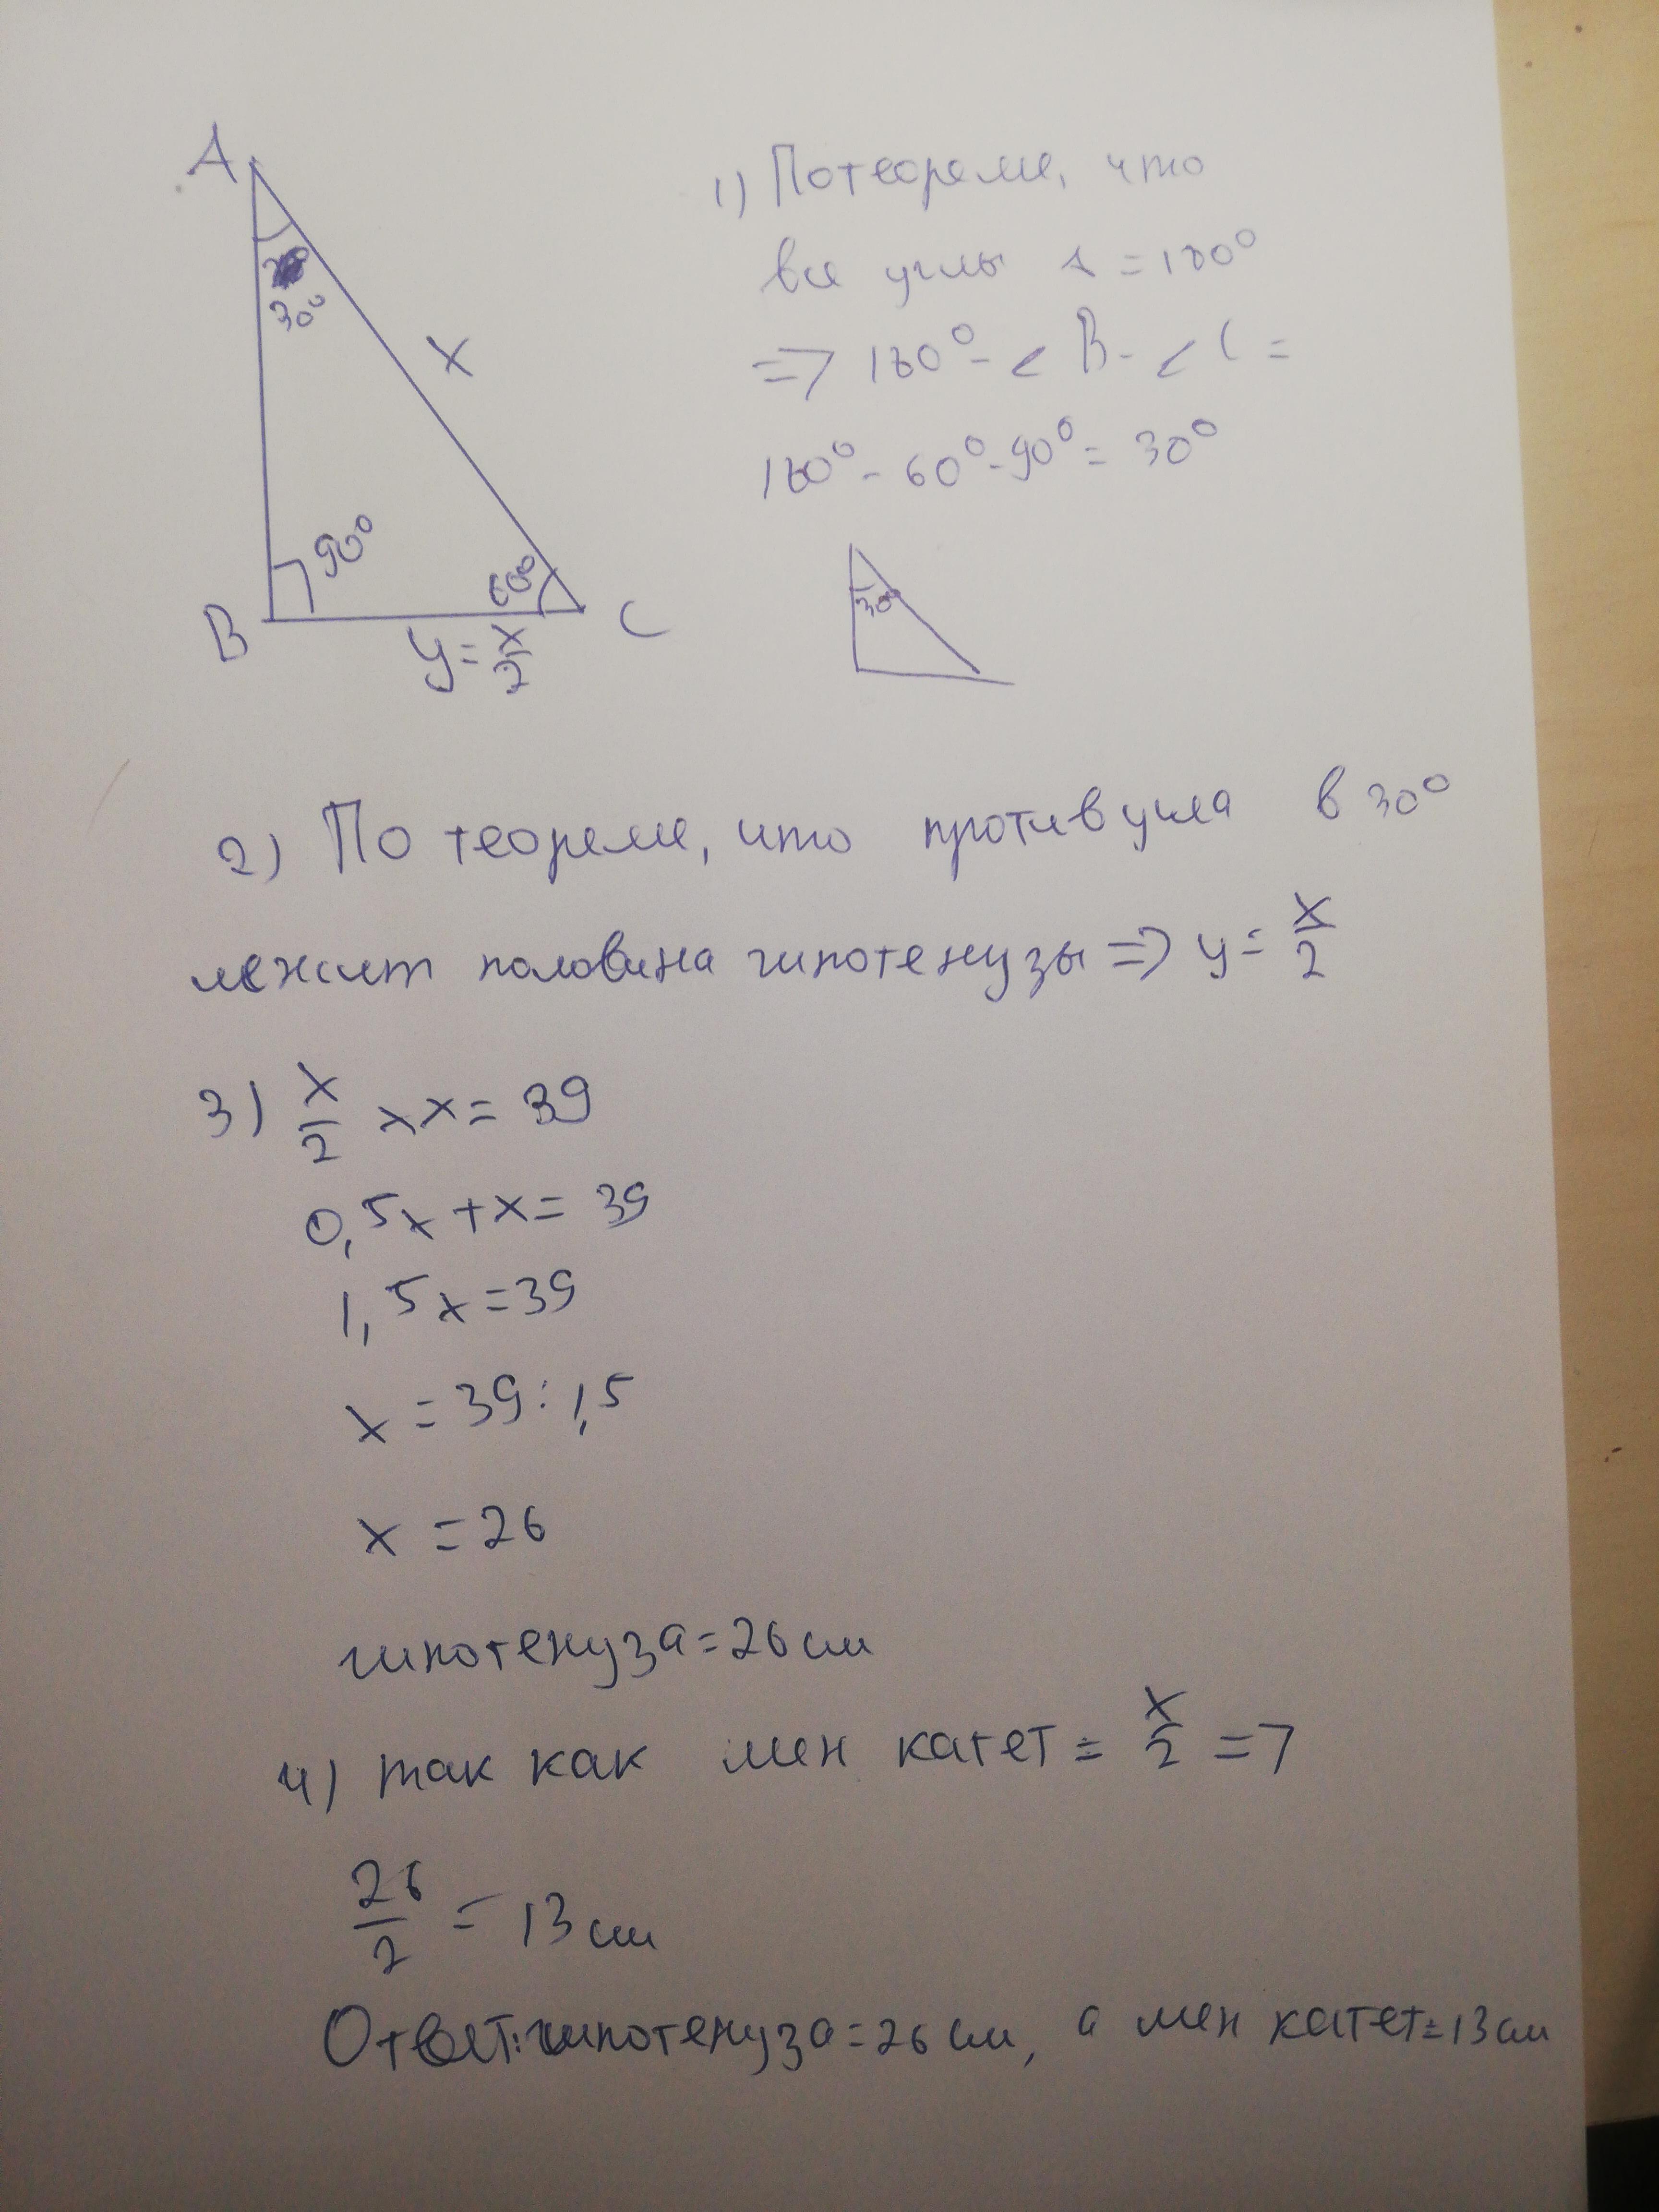 A
30°
x
90°
60°
B
C
y = x/2
1) По теореме, что
все углы ∆ = 180°
=> 180° - ∠B - ∠C =
180° - 60° - 90° = 30°
30°
2) По теореме, что против угла в 30°
лежит половина гипотенузы => y = x/2
3) x/2 + x = 39
0,5x + x = 39
1,5x = 39
x = 39 : 1,5
x = 26
гипотенуза = 26 см
4) так как мен катет = x/2 =>
26/2 = 13 см
Ответ: гипотенуза = 26 см, а мен катет = 13 см